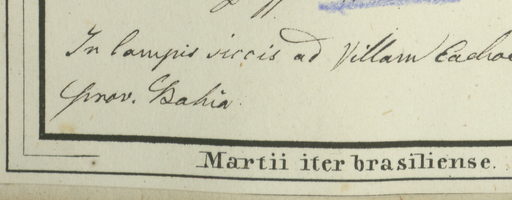 In campis siccis ad Villam Cachoe
prov. Bahia.
Martii iter brasiliense.